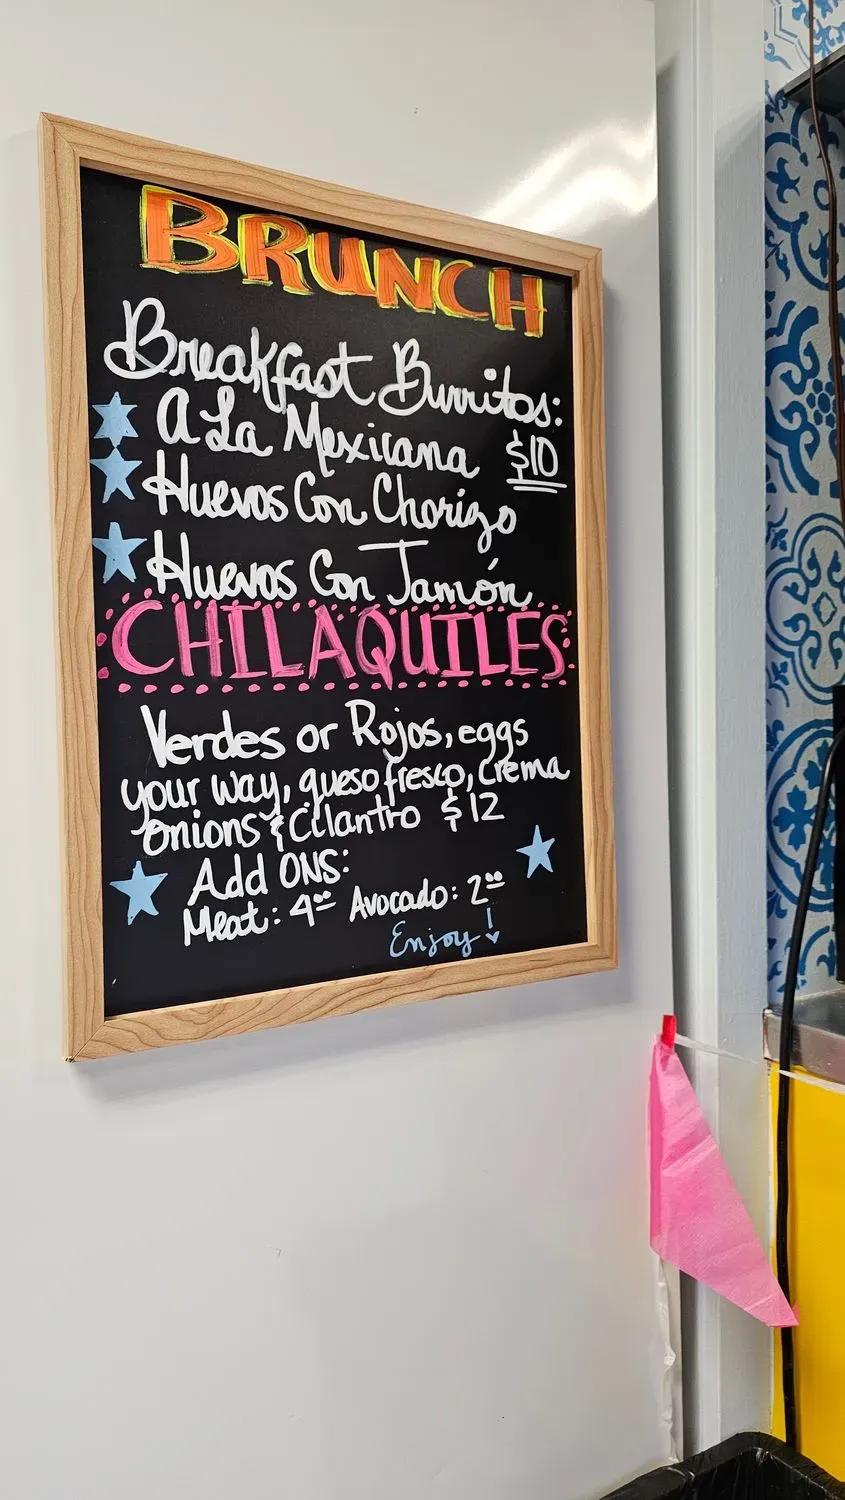 BRUNCH
Breakfast Burritos:
A La Mexicana $10
Huevos Con Chorizo
Huevos Con Jamón
CHILAQUILES
Verdes or Rojos, eggs
your way, queso fresco, crema
onions & Cilantro $12
Add ONS:
Meat: 4⁰⁰ Avocado: 2⁰⁰
Enjoy!